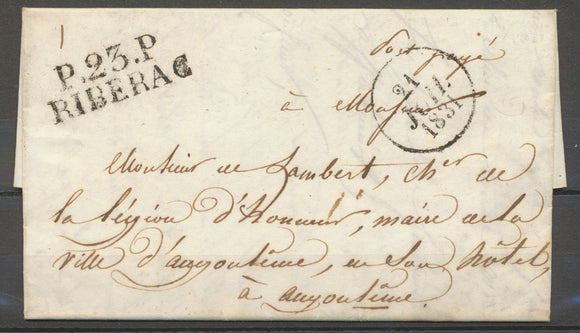 P.23.P
RIBERAC
Port payé
21
JUIL.
1831
à Monsieur
Monsieur de Lambert, Cher de
la légion d'Honneur, maire de la
ville d'angoulême, en son hôtel,
à angoulême.